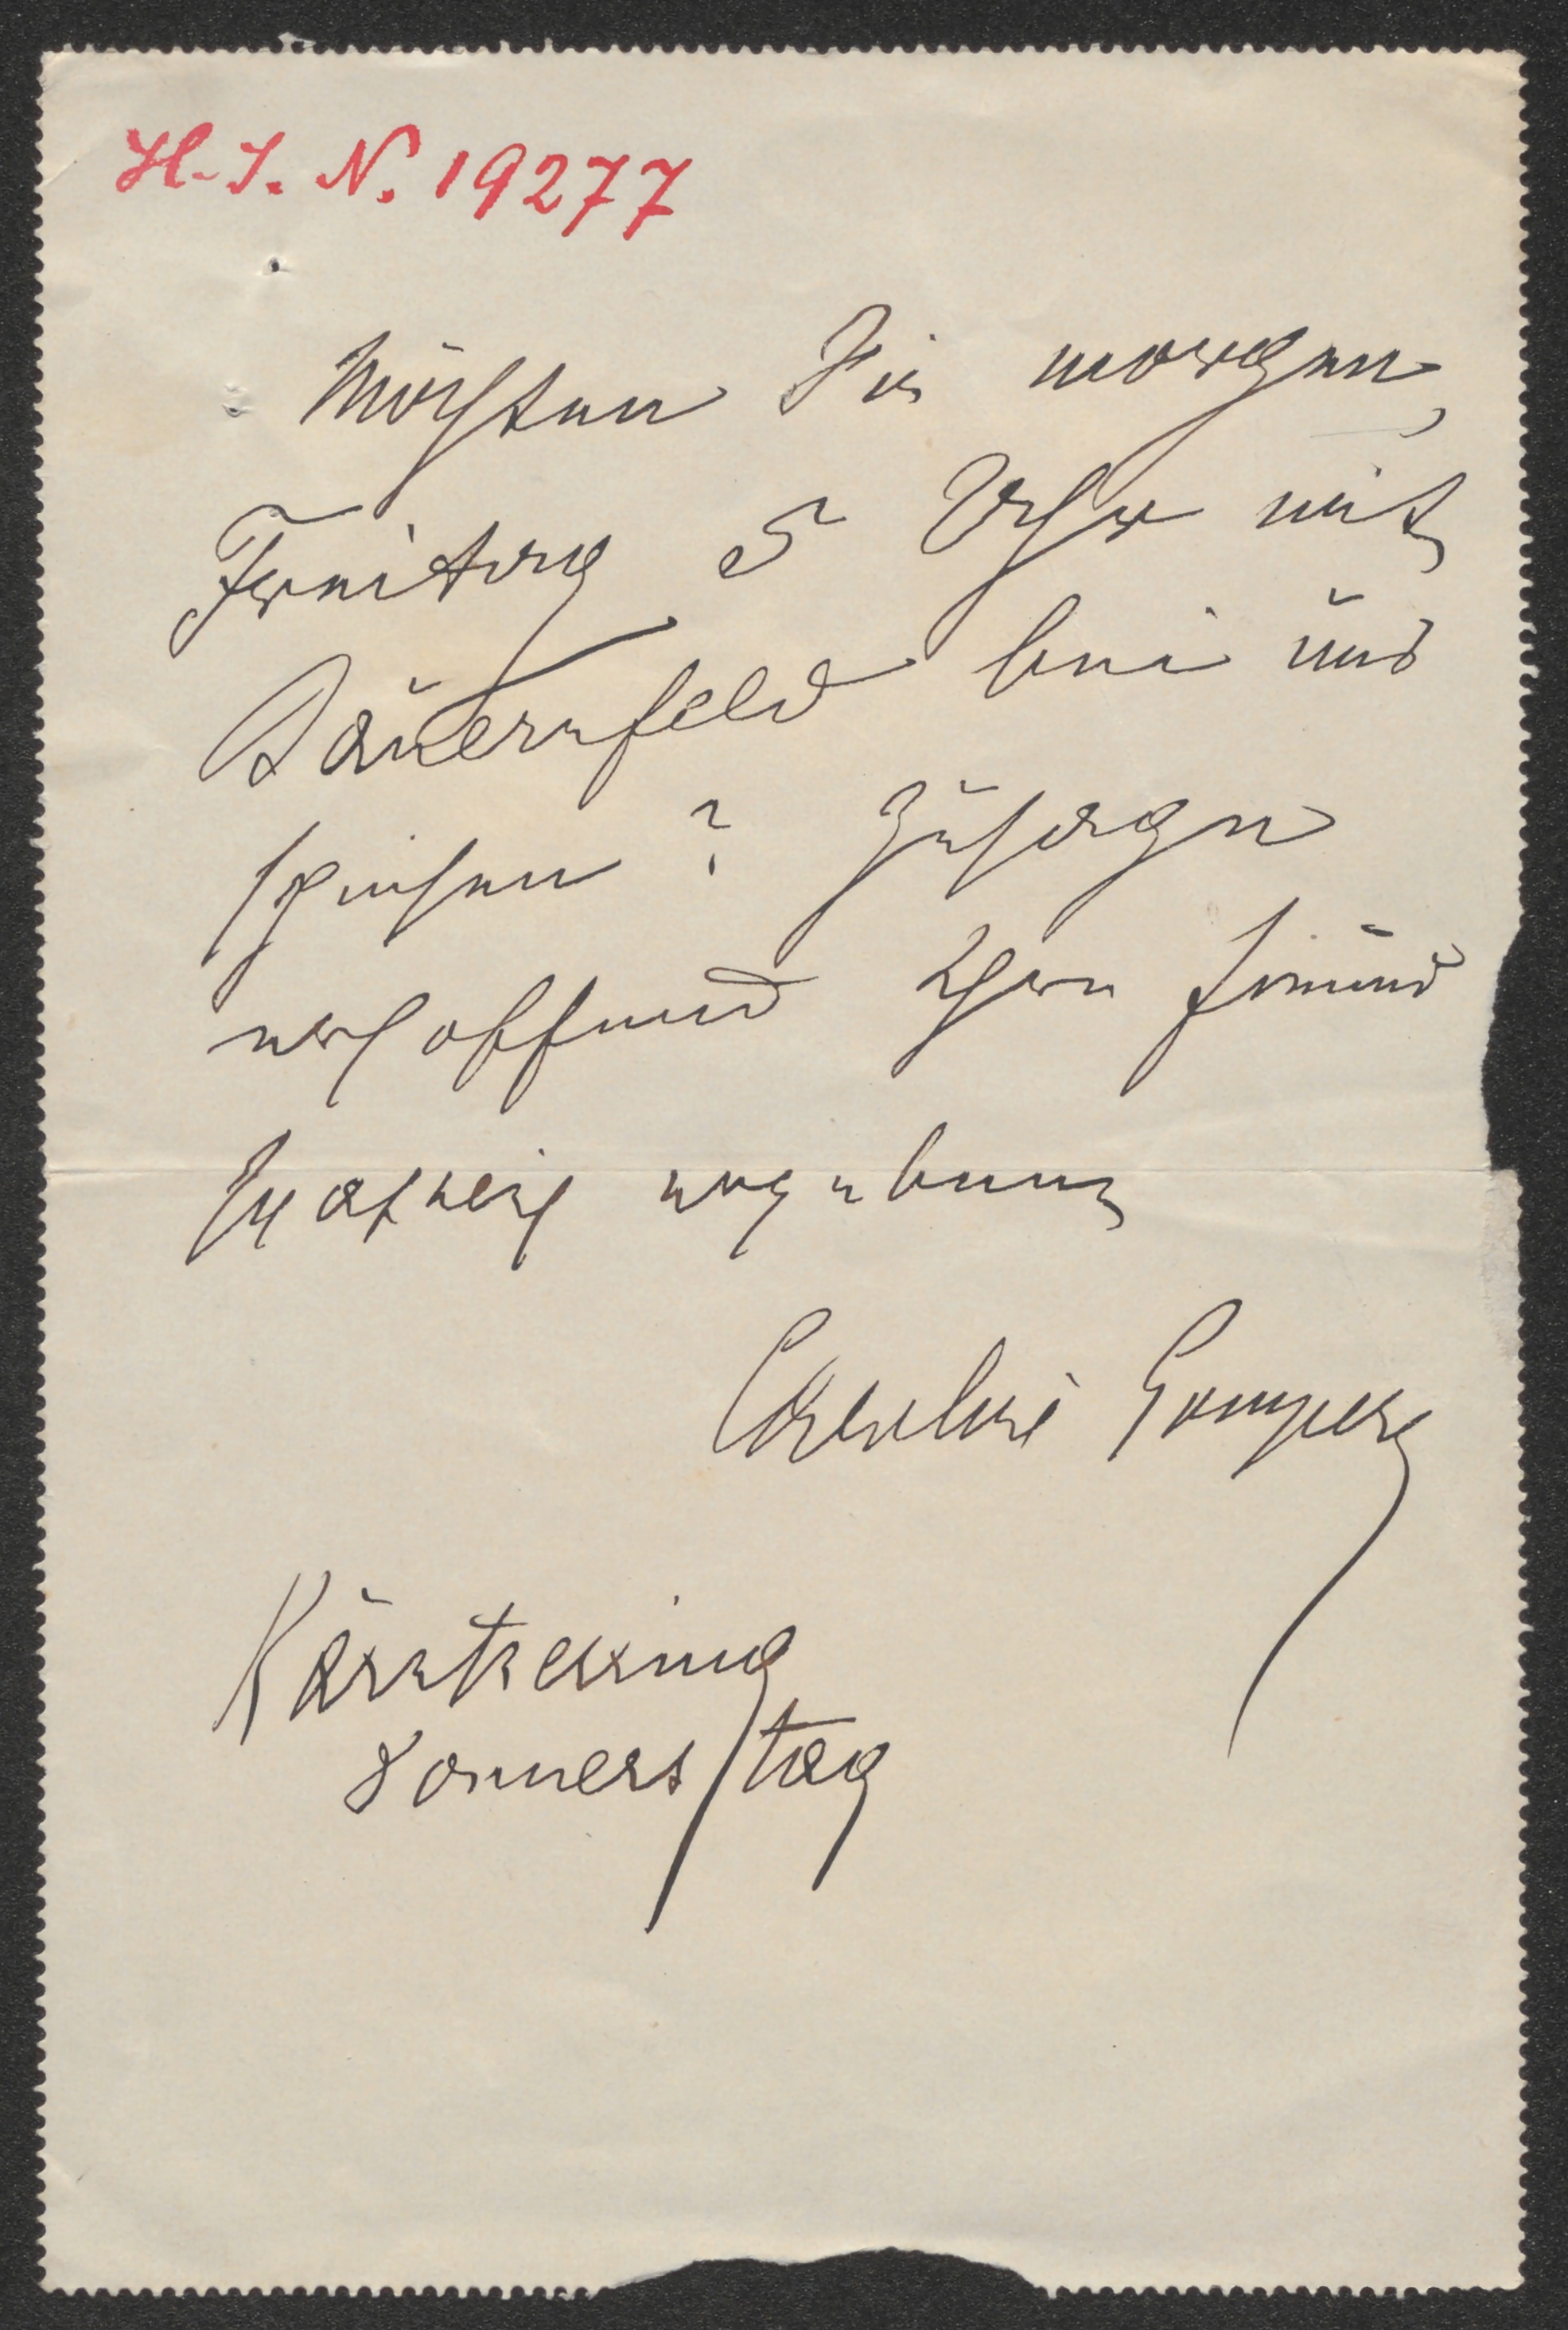 H. I. N. 19277
Möchten Sie morgen,
Freitag 5 Uhr mit
Bauernfeld bei uns
speisen? Zusagen
erhoffend Ihre freund
schaftlich ergebene
Caroline Gomperz
Kärntnerring
Donnerstag